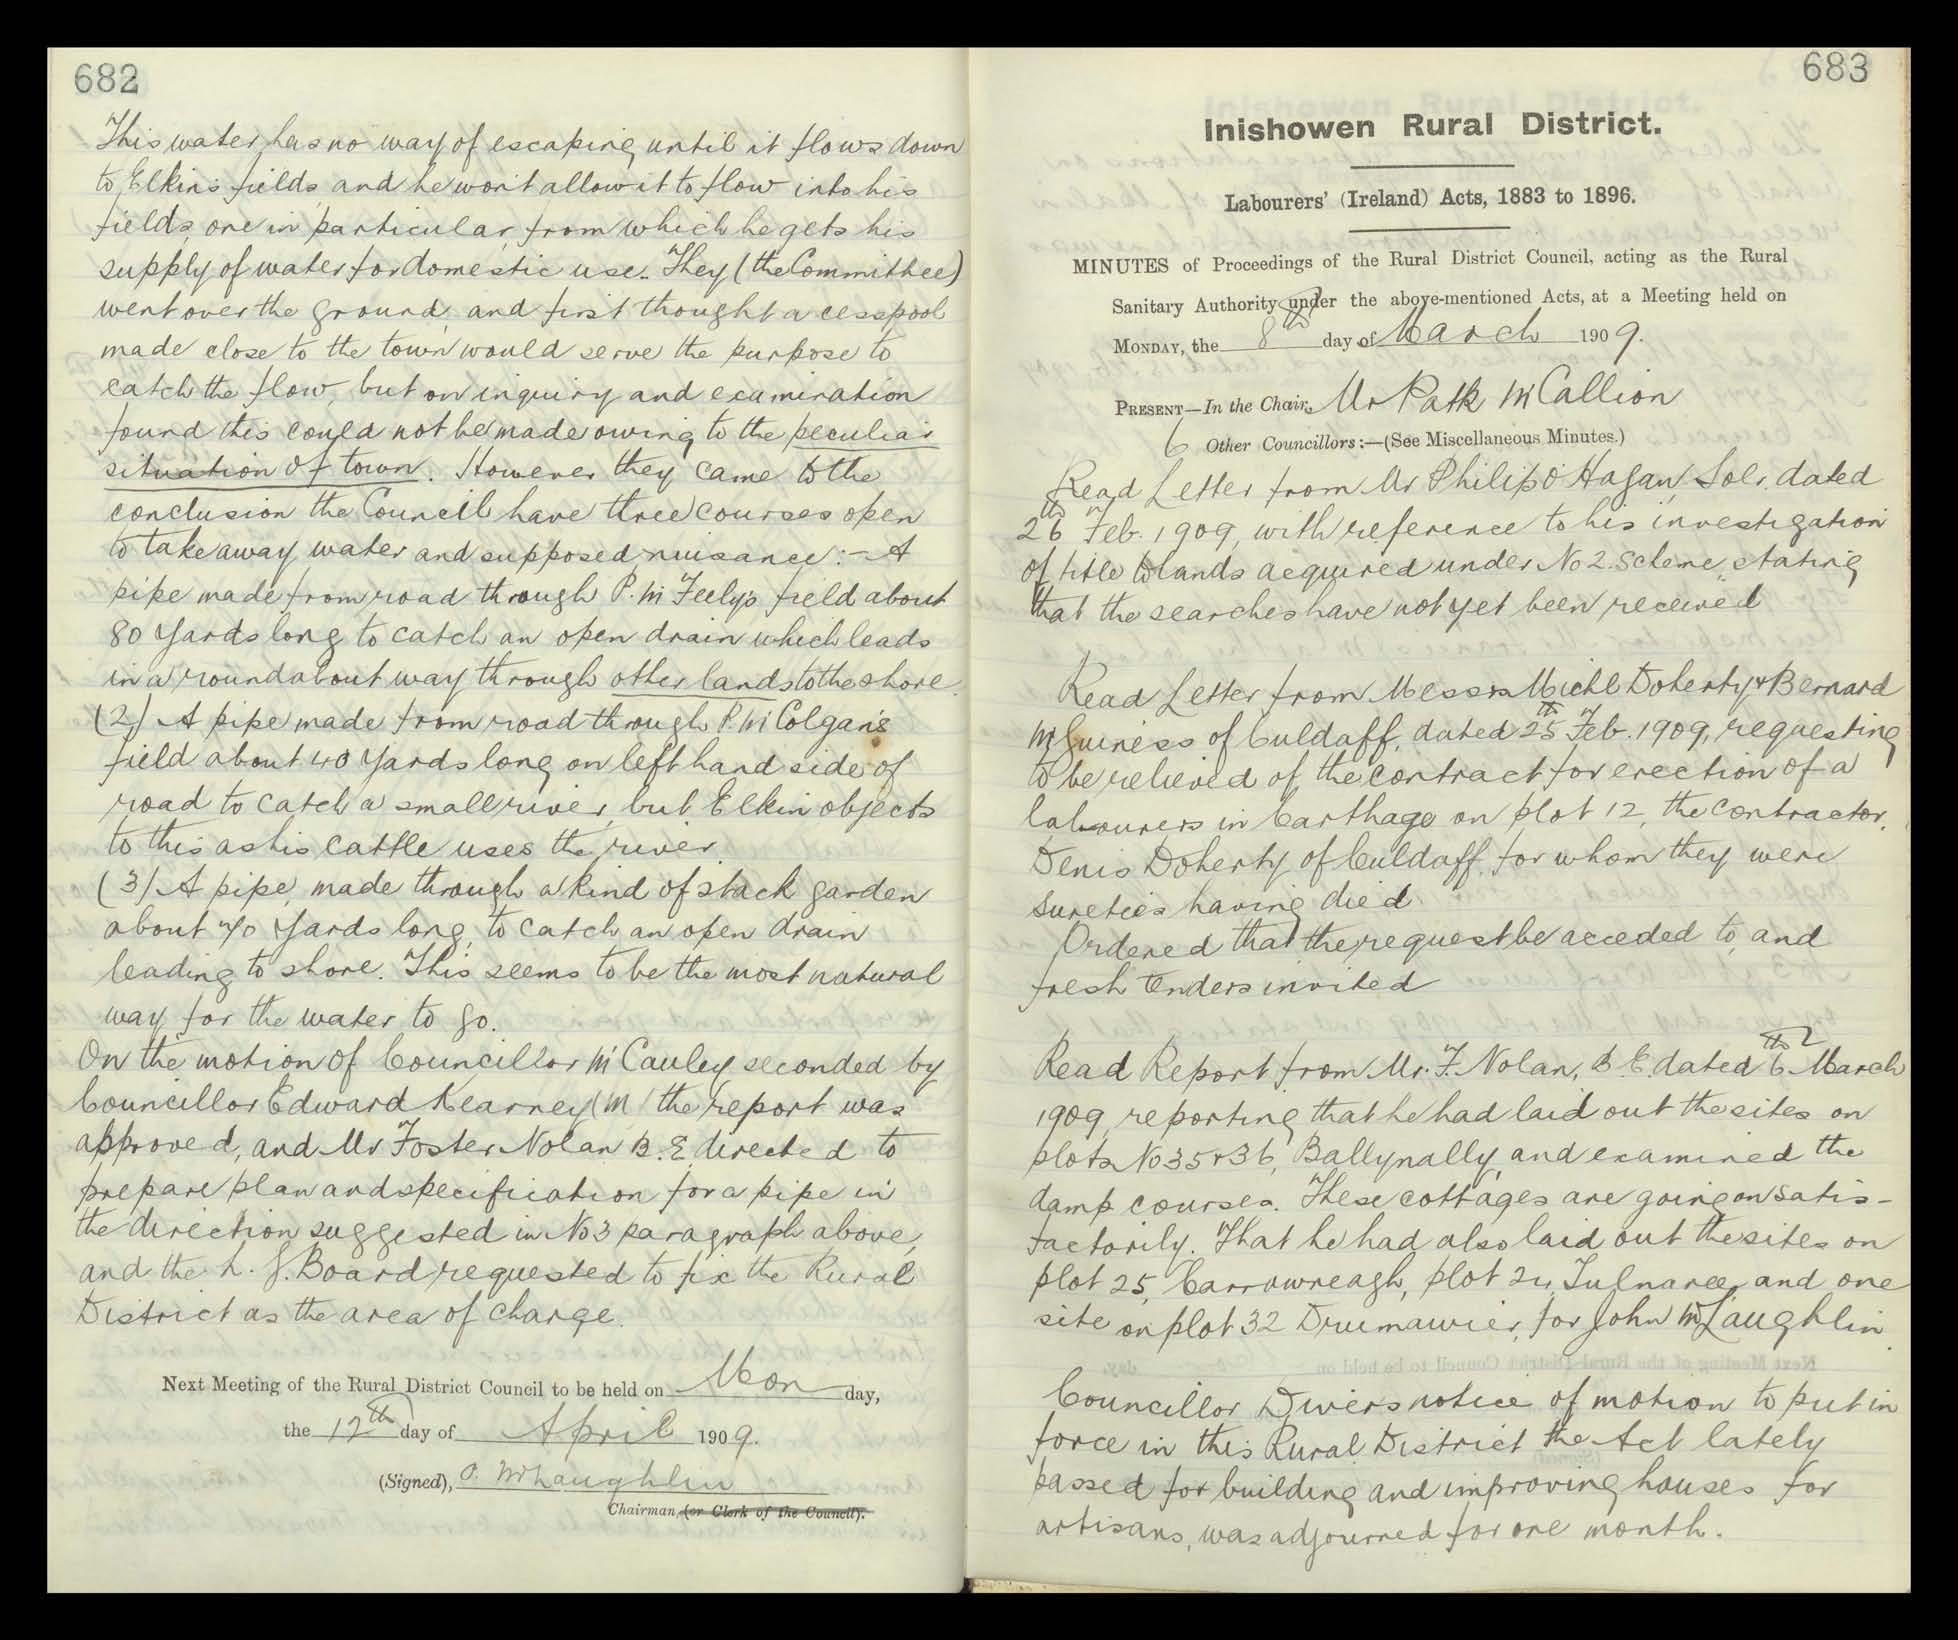 682
This water has no way of escaping until it flows down
to Elkins fields, and he wont allow it to flow into his
fields, one in particular, from which he gets his
supply of water for domestic use. They (the Committee)
went over the ground, and first thought a cesspool
made close to the town would serve the purpose to
catch the flow, but on inquiry and examination
found this could not be made owing to the peculiar
situation of town. However they came to the
conclusion the Council have three courses open
to take away water and supposed nuisance:- A
pipe made from road through P. McFeely's field about
80 yards long to catch an open drain which leads
in a roundabout way through other lands to the shore.
(2) A pipe made from road through P. McColgan's
field about 40 yards long on left hand side of
road to catch a small river, but Elkin objects
to this as his cattle uses the river.
(3) A pipe, made through a kind of stack garden
about 70 yards long, to catch an open drain
leading to shore. This seems to be the most natural
way for the water to go.
On the motion of Councillor McCauley seconded by
Councillor Edward Kearney (M) the report was
approved, and Mr Foster Nolan B.E directed to
prepare plan and specification for a pipe in
the direction suggested in No 3 paragraph above,
and the L. G. Board requested to fix the Rural
District as the area of charge.
Next Meeting of the Rural District Council to be held on Mon day,
the 12th day of April 1909.
(Signed), O. McLaughlin
Chairman, (or Clerk of the Council).
683
Inishowen Rural District.
Labourers' (Ireland) Acts, 1883 to 1896.
MINUTES of Proceedings of the Rural District Council, acting as the Rural
Sanitary Authority under the above-mentioned Acts, at a Meeting held on
MONDAY, the 8th day of March 1909.
PRESENT—In the Chair, Mr Patk McCallion
6 Other Councillors:—(See Miscellaneous Minutes.)
Read Letter from Mr Philip O'Hagan, Solr. dated
26th Feb. 1909, with reference to his investigation
of title to lands acquired under No 2. Scheme, stating
that the searches have not yet been received
Read Letter from Messrs Michl Doherty & Bernard
McGuiness of Culdaff, dated 25th Feb. 1909, requesting
to be relieved of the contract for erection of a
labourers in Carthage on plot 12, the contractor,
Denis Doherty of Culdaff, for whom they were
sureties having died.
Ordered that the request be acceded to, and
fresh tenders invited
Read Report from Mr. F. Nolan, B.E. dated 6th March
1909, reporting that he had laid out the sites on
plots No 35 & 36, Ballynally, and examined the
damp courses. These cottages are going on satis-
factorily. That he had also laid out the sites on
plot 25, Carrowreagh, plot 24, Tulnaree, and one
site on plot 32 Drumawier, for John McLaughlin.
Councillor Divers notice of motion to put in
force in this Rural District the Act lately
passed for building and improving houses for
artisans, was adjourned for one month.